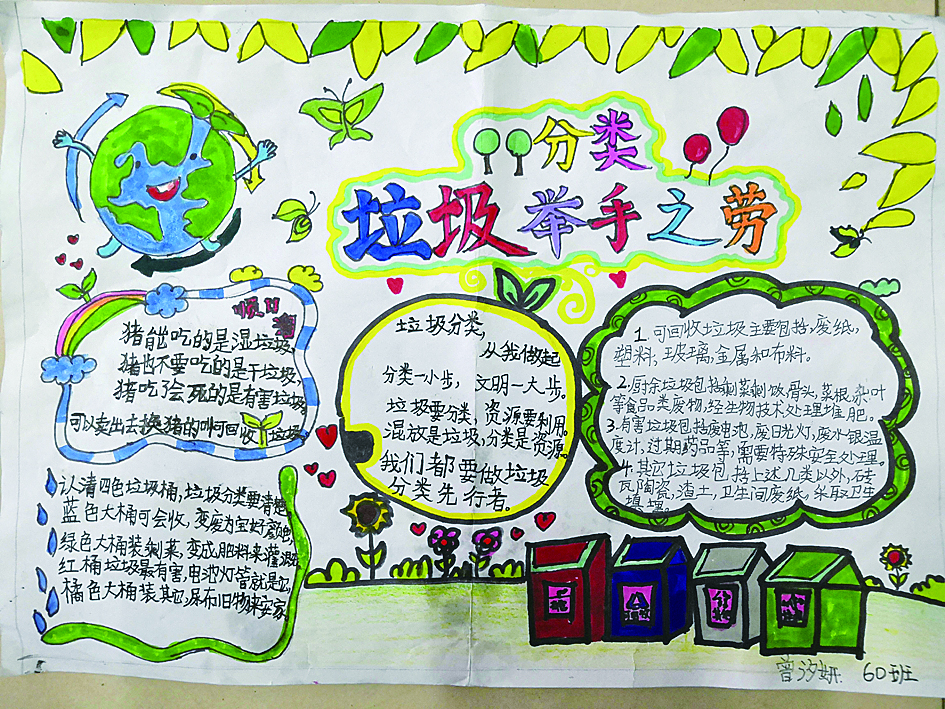 分类
垃圾举手之劳
顺口
猪能吃的是湿垃圾,
猪也不要吃的是干垃圾,
猪吃了会死的是有害垃圾,
可以卖出去换猪的叫可回收垃圾
认清四色垃圾桶,垃圾分类要清楚
蓝色大桶可会收,变废为宝好颜色
绿色大桶装剩菜,变成肥料来灌溉
红桶垃圾最有害,电池灯管就是它
橘色大桶装其它,尿布旧物来安家
垃圾分类,
从我做起
分类一小步,文明一大步。
垃圾要分类,资源要利用。
混放是垃圾,分类是资源。
我们都要做垃圾
分类先行者。
1.可回收垃圾主要包括,废纸,
塑料,玻璃,金属和布料。
2.厨余垃圾包括剩菜剩饭,骨头,菜根,杂叶
等食品类废物,经生物技术处理堆肥。
3.有害垃圾包括废电池,废日光灯,废水银温
度计,过期药品等,需要特殊安全处理。
4.其它垃圾包括上述几类以外,砖
瓦陶瓷,渣土,卫生间废纸,采取卫生
填埋。
曾汐妍 60班